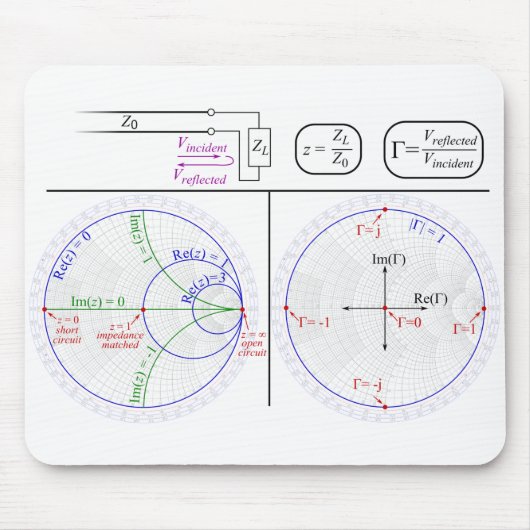 Z0
ZL
Vincident
Vreflected
z = ZL/Z0
Γ = Vreflected/Vincident
Re(z) = 0
Im(z) = 1
Re(z) = 1
Re(z)=3
Im(z) = 0
Im(z) = -1
z = 0
short
circuit
z = 1
impedance
matched
z = ∞
open
circuit
Γ= j
|Γ| = 1
Im(Γ)
Re(Γ)
Γ= -1
Γ=0
Γ=1
Γ= -j